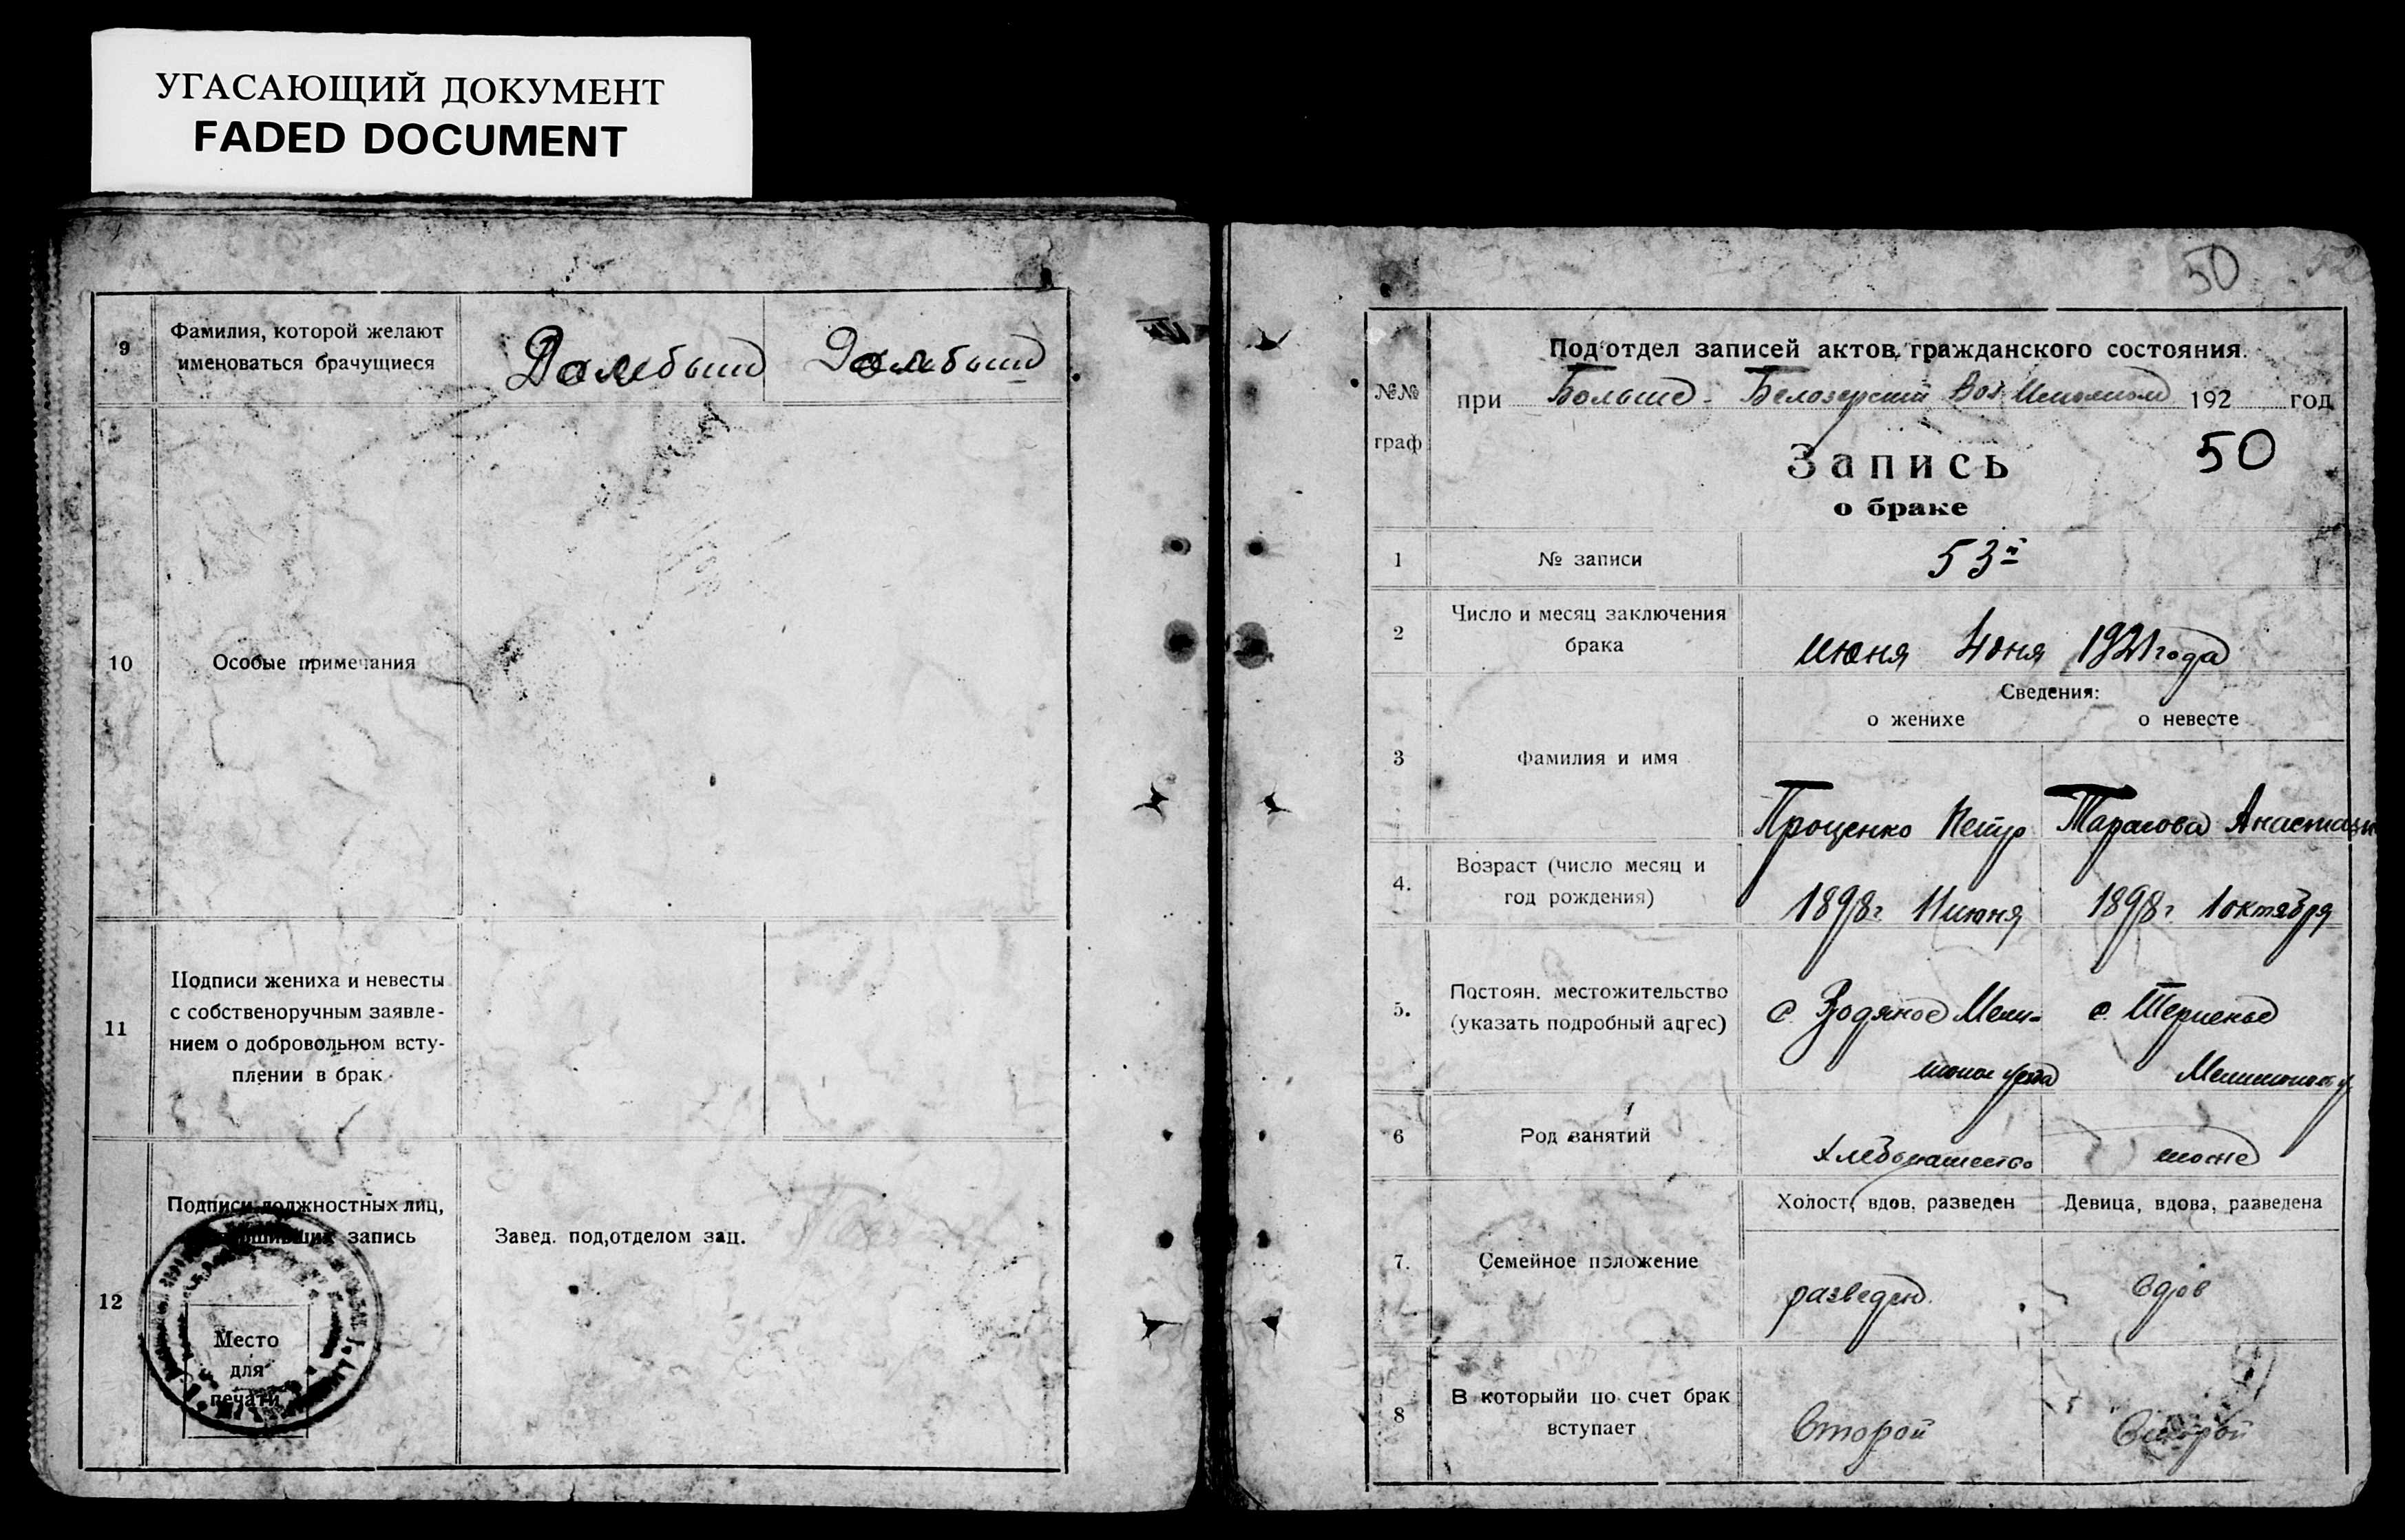 УГАСАЮЩИЙ ДОКУМЕНТ
FADED DOCUMENT
9
Фамилия, которой желают
именоваться брачущиеся
10
Особые примечания
11
Подписи жениха и невесты
с собственоручным заявле-
нием о добровольном всту-
плении в брак
12
Подписи должностных лиц,
запись
Завед. под,отделом зап.
Место
для
печати
50
Под'отдел записей актов гражданского состояния.
№№
граф
при Больше-Белозерский Вол 192 год
Запись
50
о браке
1
№ записи
53й
2
Число и месяц заключения
брака
июня 4 дня 1921 года
Сведения:
о женихе
о невесте
3
Фамилия и имя
Проценко Петр
Тарасова
4.
Возраст (число месяц и
год рождения)
1898г. 11 июня
1898г. 1 октября
5.
Постоян. местожительство
(указать подробный адрес)
с.
с. Терпенье
6
Род занятий
Хлебопашество
тоже
Холост, вдов, разведен
Девица, вдова, разведена
7.
Семейное положение
разведен
вдов
8
В которыйи по счет брак
вступает
Второй
Второй